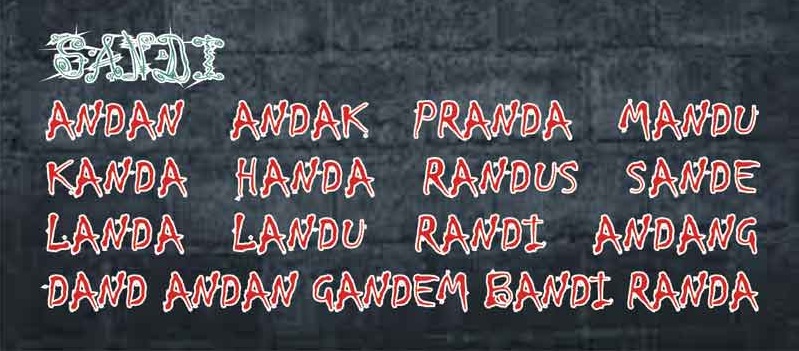 SANDI
ANDAN ANDAK PRANDA MANDU
KANDA HANDA RANDUS SANDE
LANDA LANDU RANDI ANDANG
DAND ANDAN GANDEM BANDI RANDA